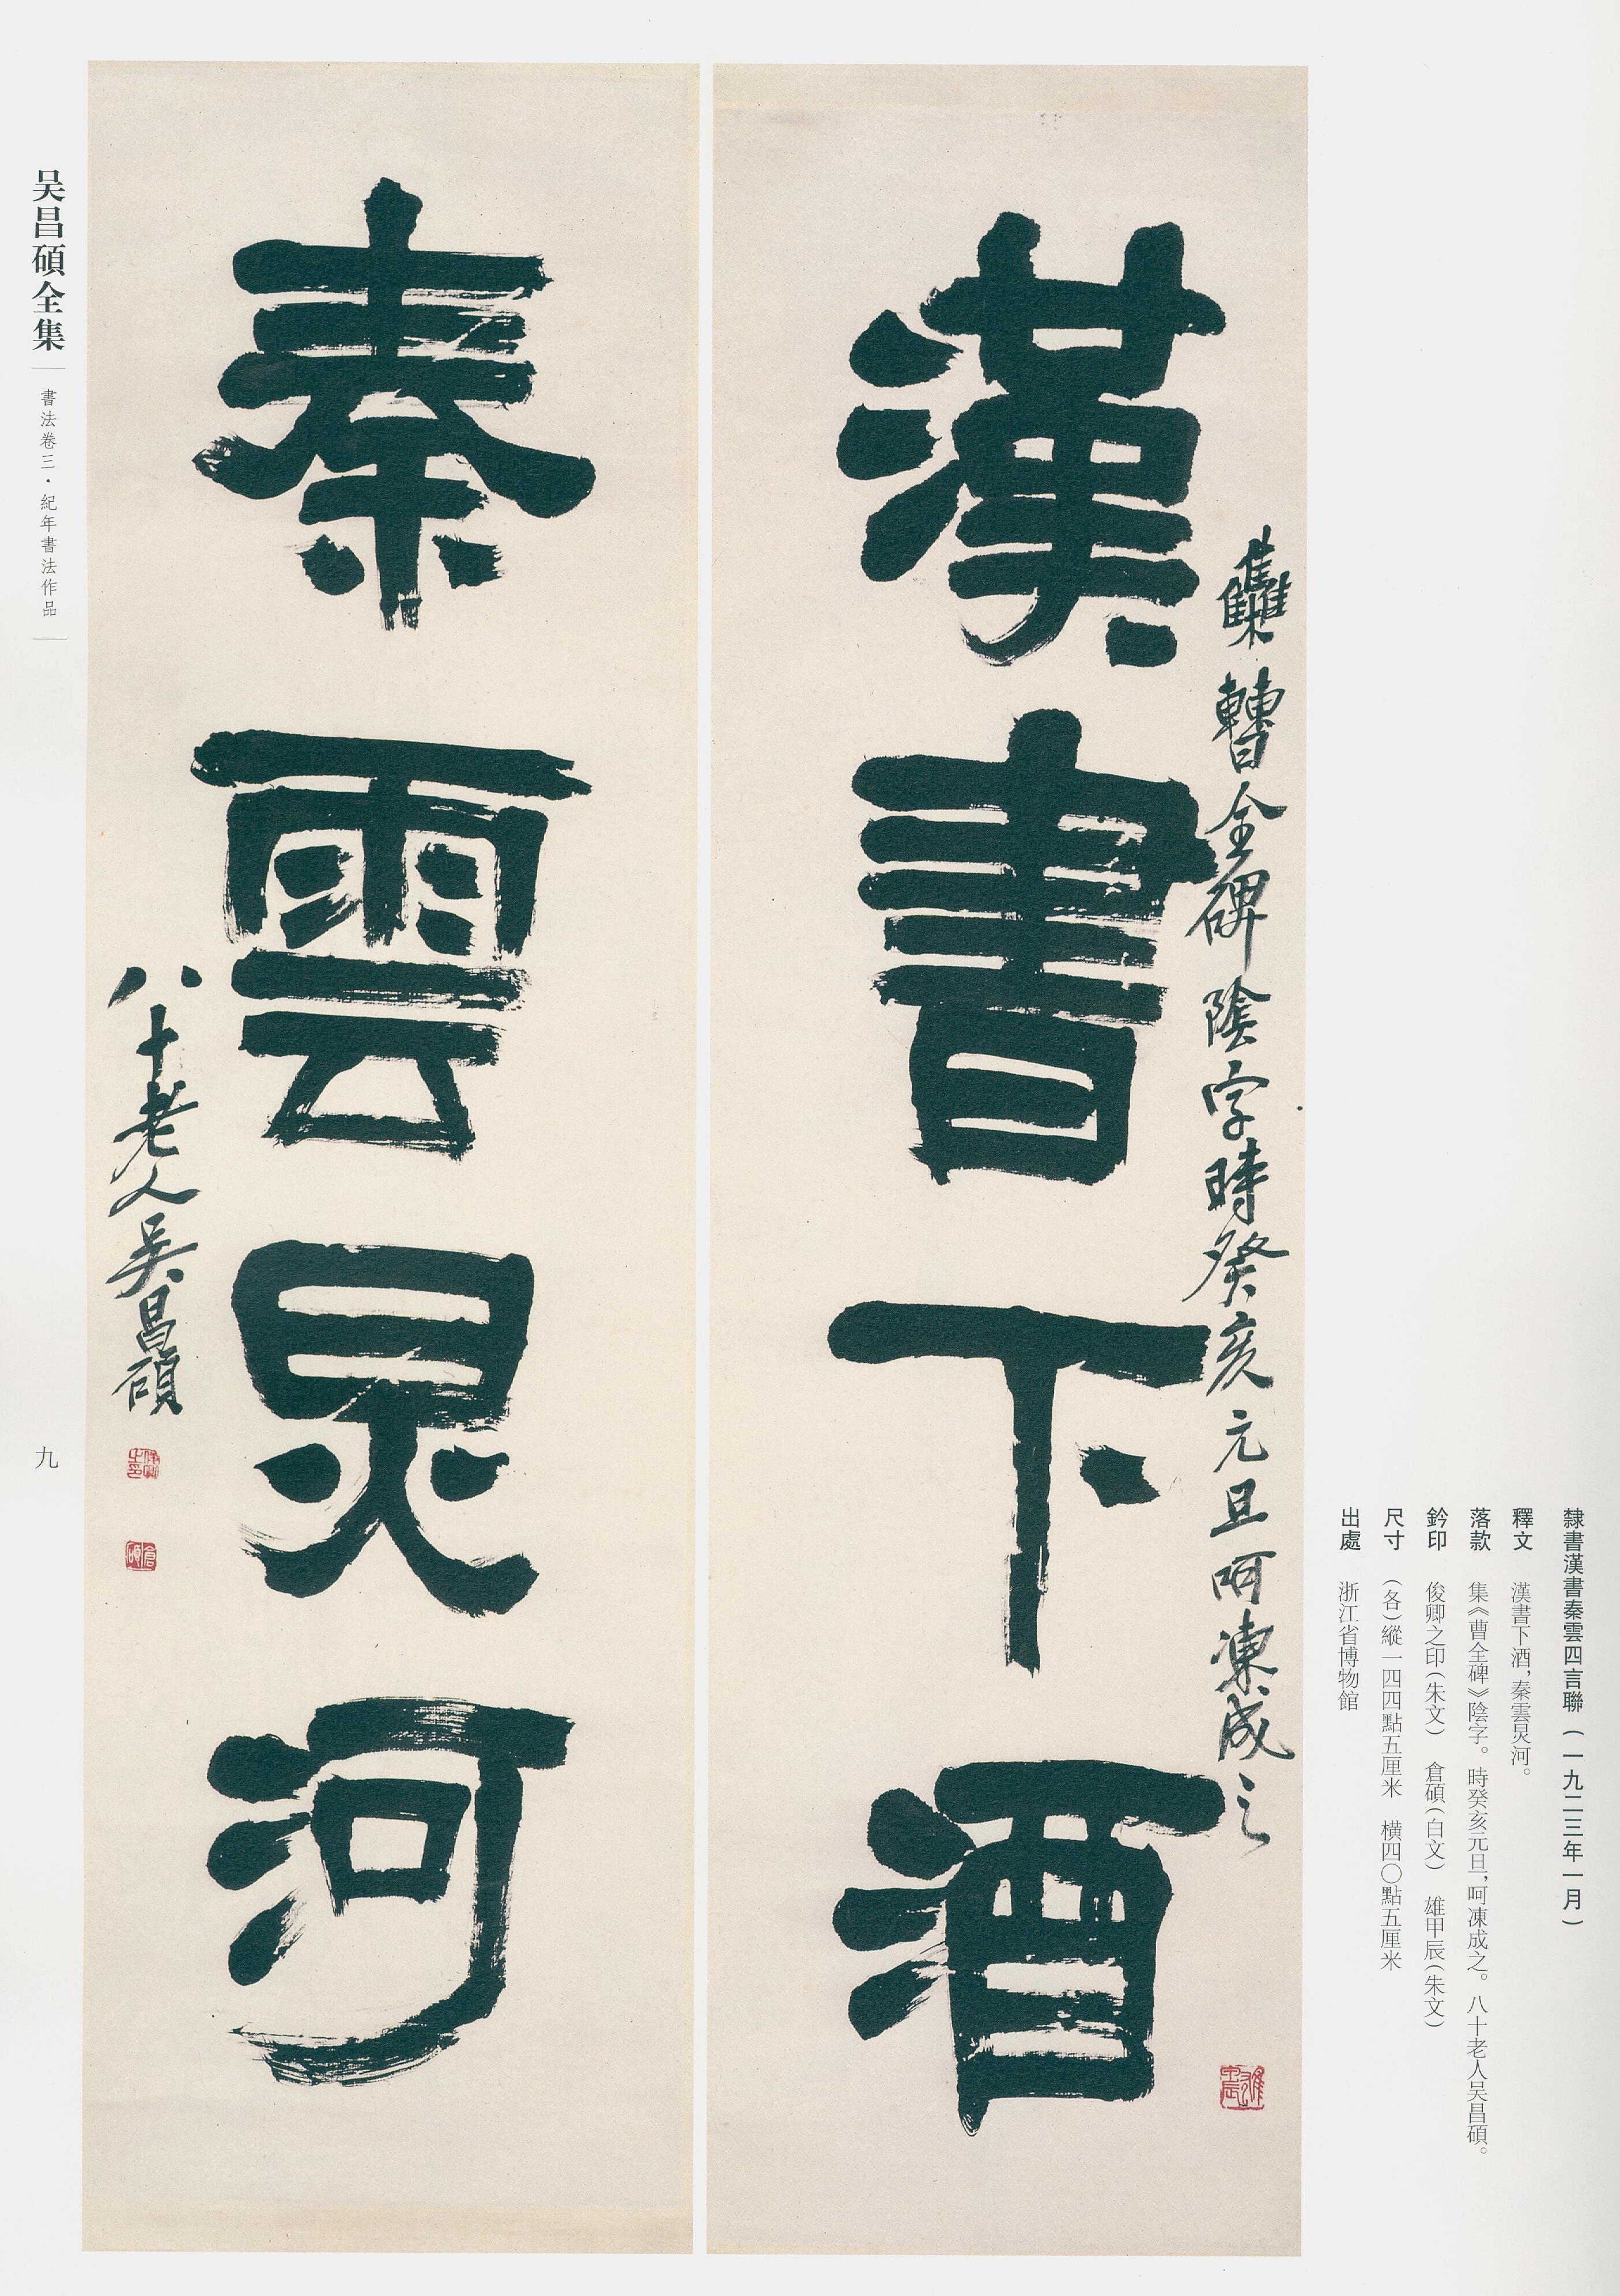 漢書下酒
雧𣍘全碑陰字時癸亥元旦呵凍成之
雄甲辰
秦雲炅河
八十老人吴昌碩
俊卿之印
倉碩
隸書漢書秦雲四言聯（一九二三年一月）
釋文　漢書下酒，秦雲炅河。
落款　集《曹全碑》陰字。時癸亥元旦，呵凍成之。八十老人吴昌碩。
鈐印　俊卿之印（朱文）　倉碩（白文）　雄甲辰（朱文）
尺寸　（各）縱一四四點五厘米　横四〇點五厘米
出處　浙江省博物館
吴昌碩全集
書法卷三·紀年書法作品
九